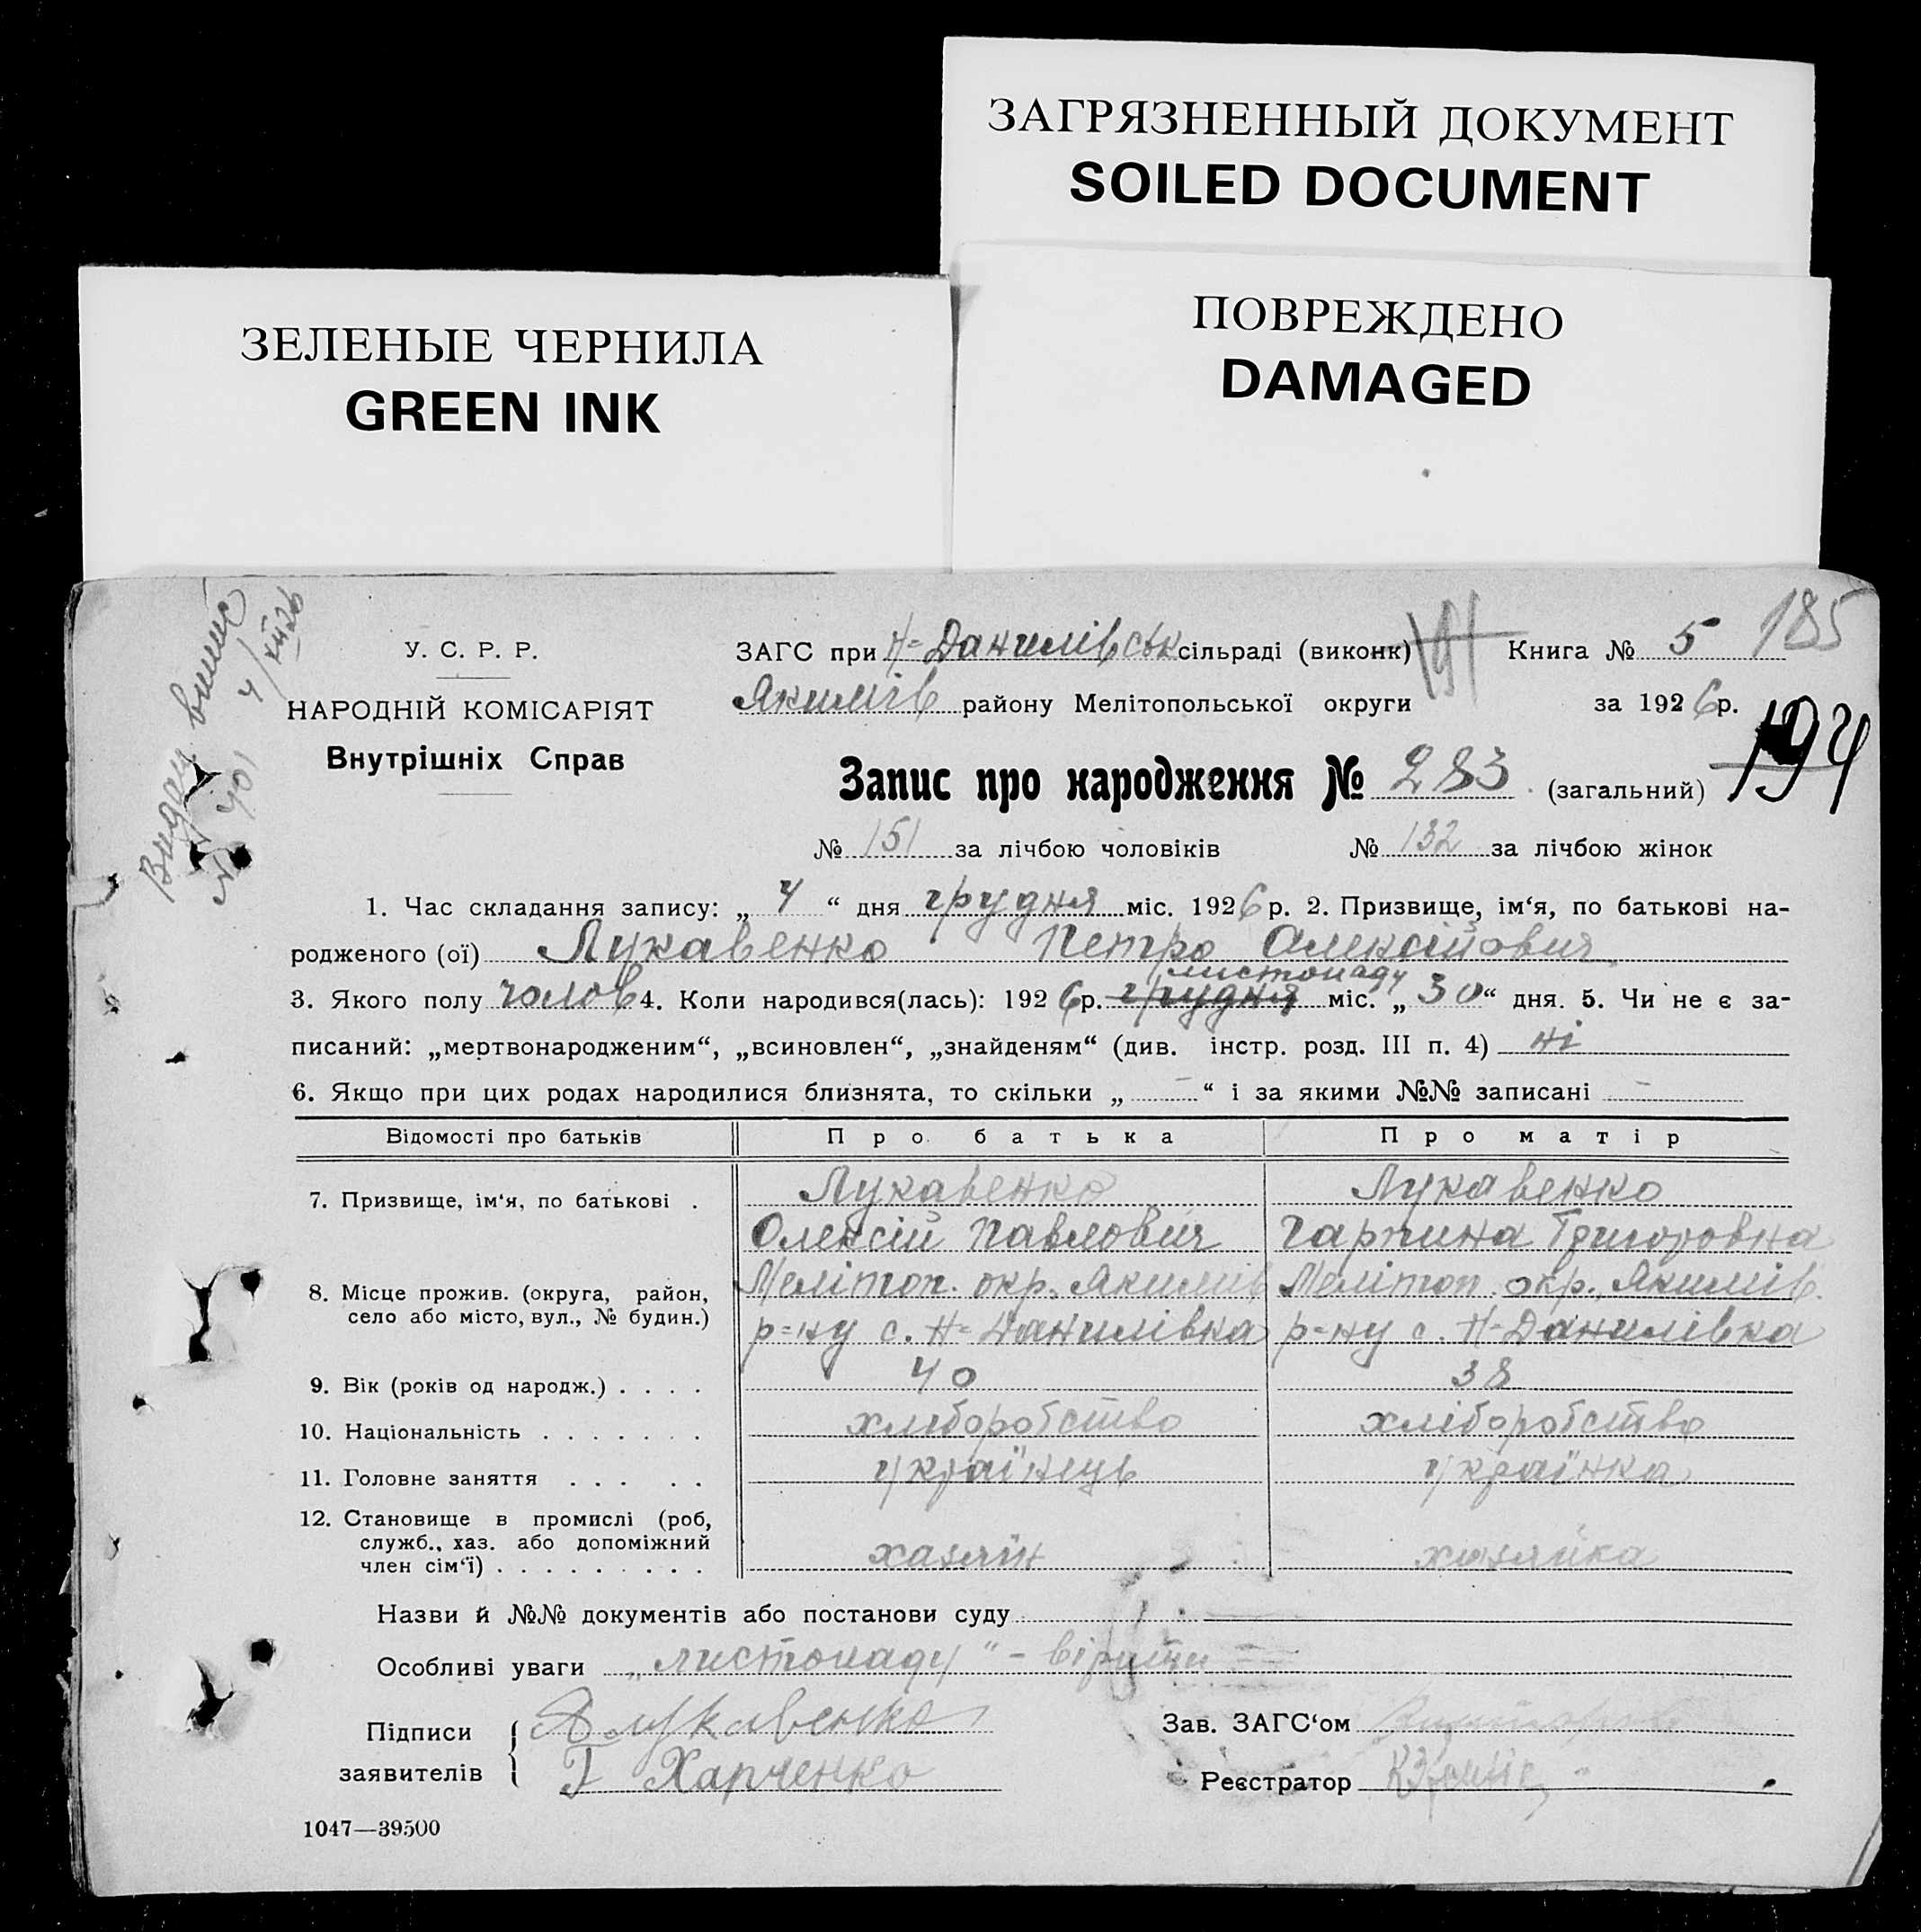 ЗАГРЯЗНЕННЫЙ ДОКУМЕНТ
SOILED DOCUMENT
ЗЕЛЕНЫЕ ЧЕРНИЛА
GREEN INK
ПОВРЕЖДЕНО
DAMAGED
Видан випис
№ 401 4/XII 26
185
У. С. Р. Р.
НАРОДНІЙ КОМІСАРІЯТ
Внутрішніх Справ
ЗАГС при Н-Данилівськ сільраді (виконк) 191 Книга № 5
Якимів району Мелітопольської округи за 1926 р.
194
Запис про народження № 283 (загальний)
№ 151 за лічбою чоловіків № 132 за лічбою жінок
1. Час складання запису: „ 4 “ дня грудня міс. 1926 р. 2. Призвище, ім‘я, по батькові на-
родженого (ої) Лукавенко Петро Олексійович
листопаду
3. Якого полу чолов 4. Коли народився(лась): 1926 р. грудня міс. „ 30 “ дня. 5. Чи не є за-
писаний: „мертвонародженим“, „всиновлен“, „знайденям“ (див. інстр. розд. III п. 4) ні
6. Якщо при цих родах народилися близнята, то скільки „ — “ і за якими №№ записані —
Відомості про батьків Про батька Про матір
7. Призвище, ім‘я, по батькові . Лукавенко Лукавенко
Олексій Павлович Гарпина Григоровна
8. Місце прожив. (округа, район, Меліточ. окр. Якимів Меліточ. окр. Якимів.
село або місто, вул., № будин.) р=ну с. Н=Данилівка р=ну с. Н-Данилівка
9. Вік (років од народж.) . . . . 40 38
10. Національність . . . . . . . хліборобство хліборобство
11. Головне заняття . . . . . українець українка
12. Становище в промислі (роб,
служб., хаз. або допоміжний
член сім‘ї) . . . . . . . . . хазяїн хазяйка
Назви й №№ документів або постанови суду
Особливі уваги „листопаду“ - вірити
Підписи Лукавенко Зав. ЗАГС‘ом
заявителів Г Харченко Реєстратор
1047—39500